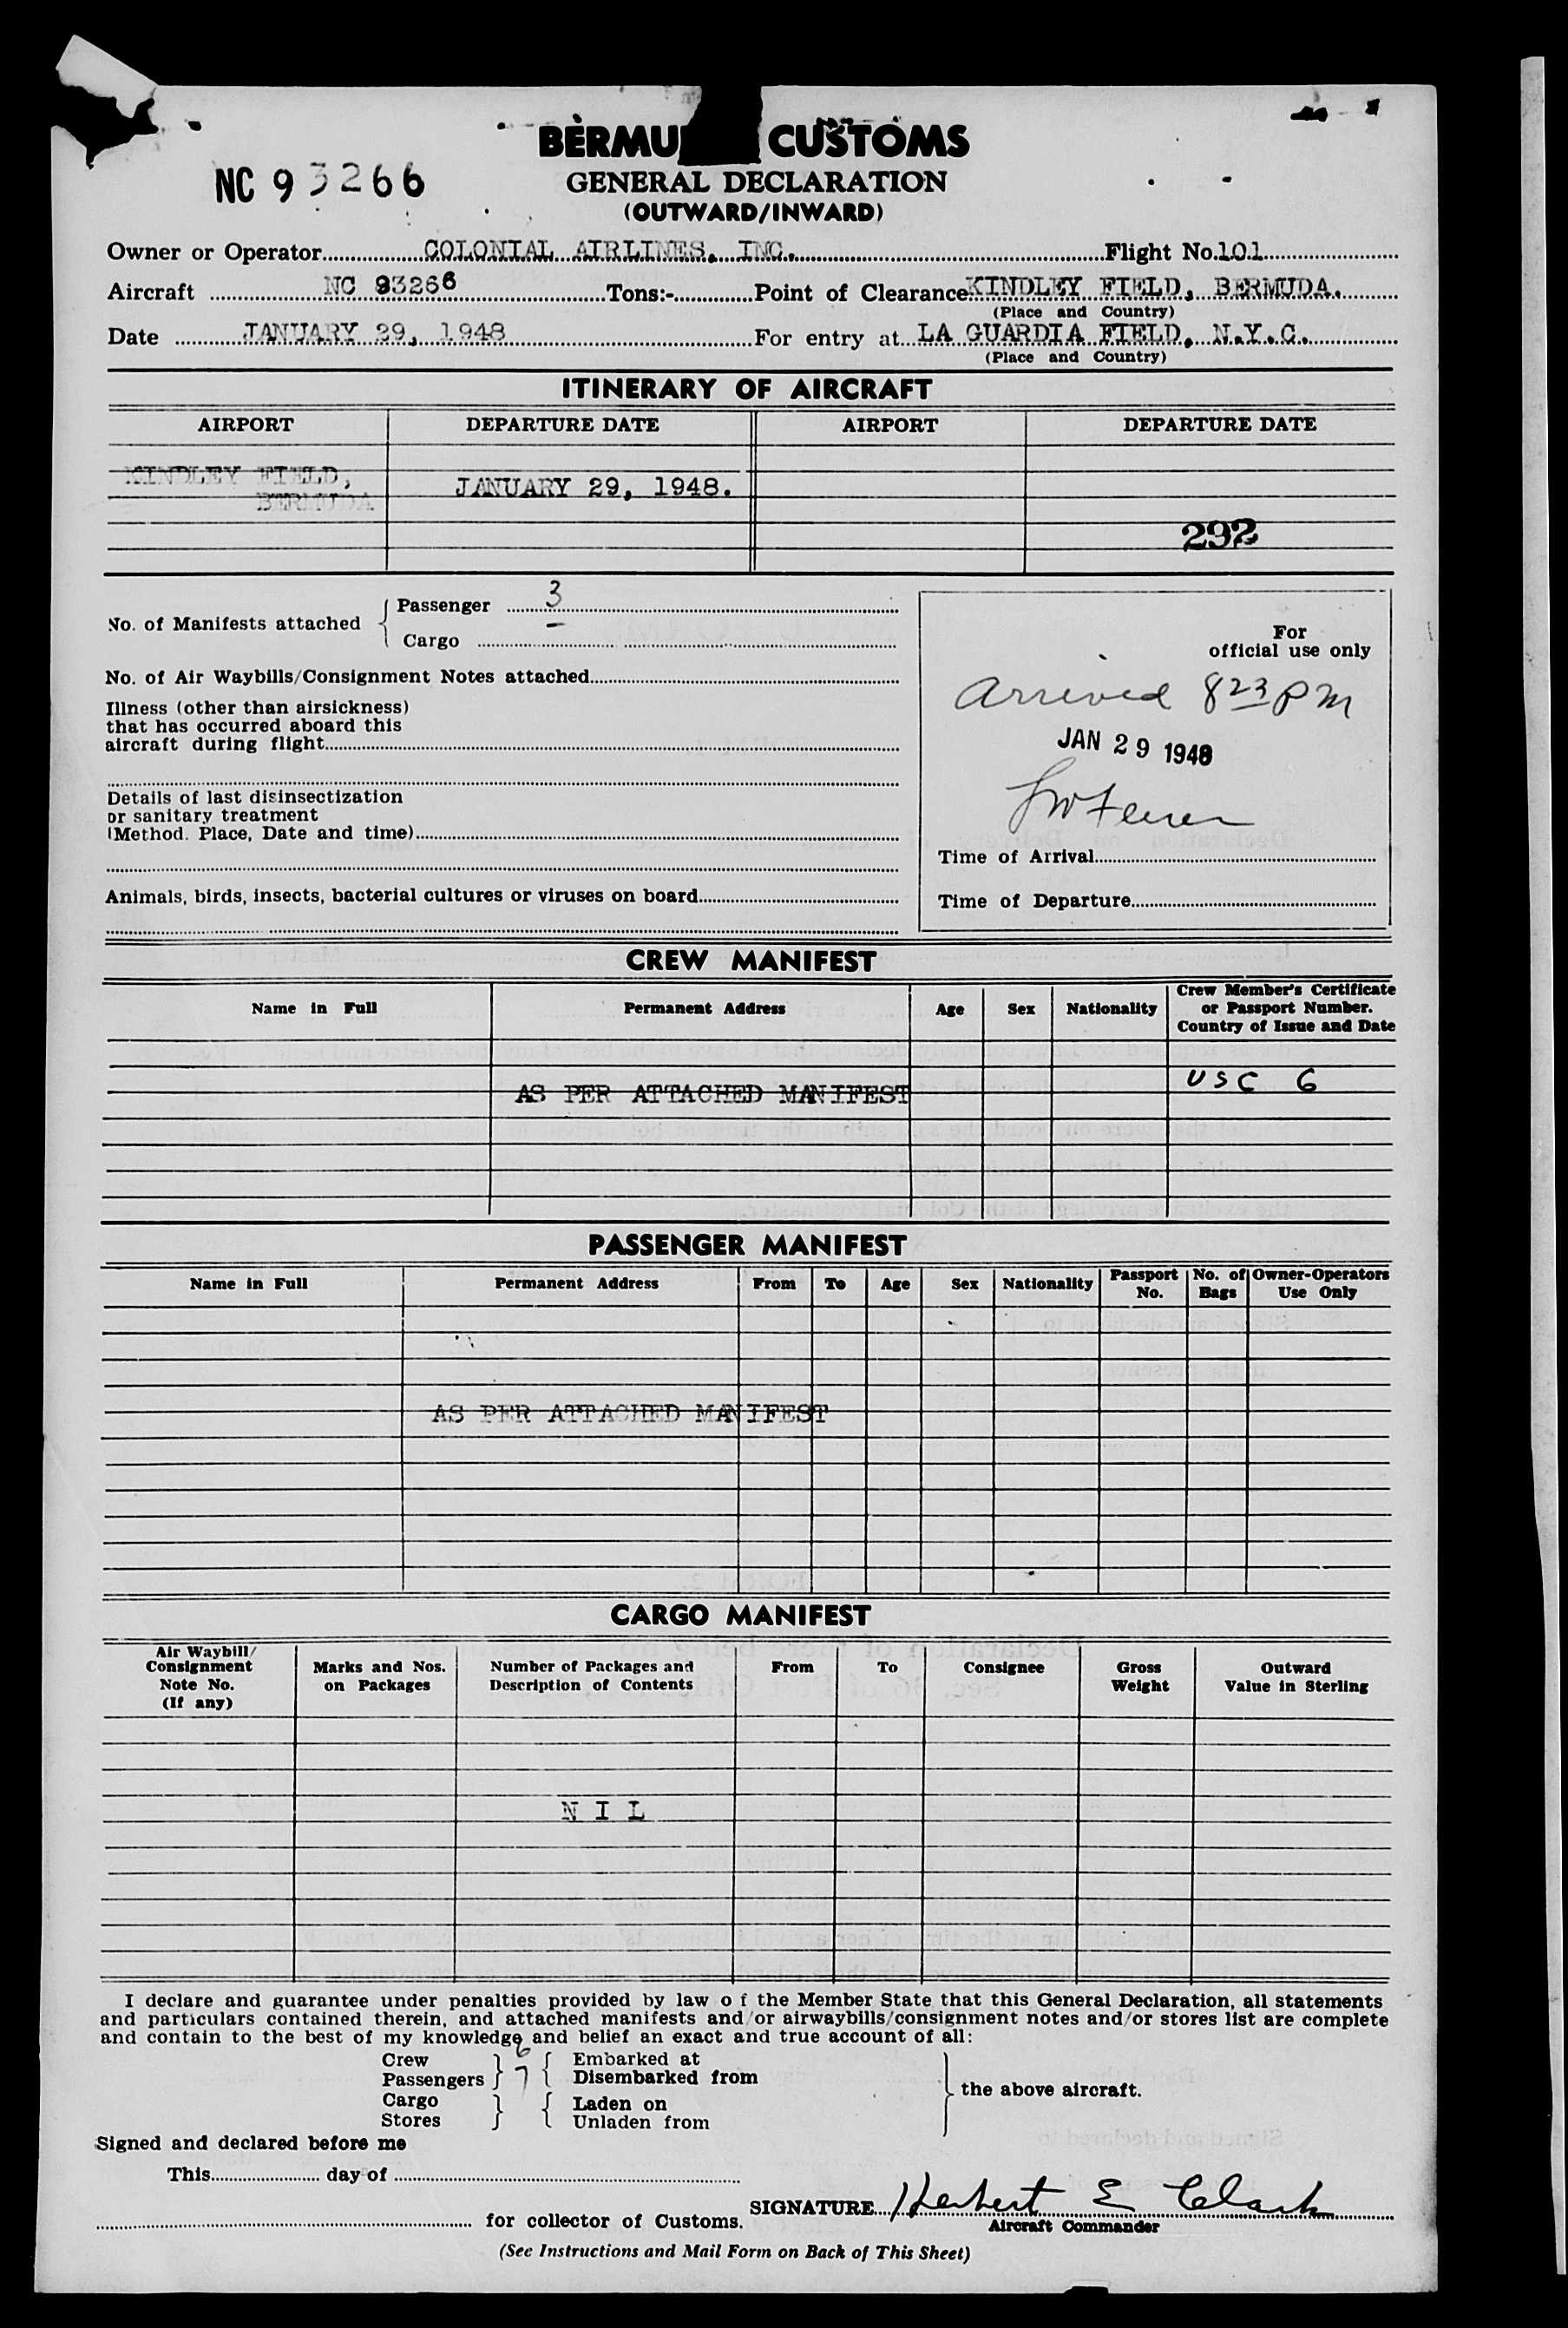 BERMU CUSTOMS
NC 93266
GENERAL DECLARATION
(OUTWARD/INWARD)
Owner or Operator COLONIAL AIRLINES, INC. Flight No. 101
Aircraft NC 93266 Tons:- Point of Clearance KINDLEY FIELD, BERMUDA.
(Place and Country)
Date JANUARY 29, 1948 For entry at LA GUARDIA FIELD, N.Y.C.
(Place and Country)
ITINERARY OF AIRCRAFT
AIRPORT DEPARTURE DATE AIRPORT DEPARTURE DATE
KINDLEY FIELD,
BERMUDA JANUARY 29, 1948.
292
No. of Manifests attached { Passenger 3
Cargo -
No. of Air Waybills/Consignment Notes attached
Illness (other than airsickness)
that has occurred aboard this
aircraft during flight
Details of last disinsectization
or sanitary treatment
(Method. Place, Date and time)
Animals, birds, insects, bacterial cultures or viruses on board
For
official use only
Arrived 8 23 PM
JAN 29 1948
Time of Arrival
Time of Departure
CREW MANIFEST
Name in Full Permanent Address Age Sex Nationality Crew Member's Certificate
or Passport Number.
Country of Issue and Date
USC 6
AS PER ATTACHED MANIFEST
PASSENGER MANIFEST
Name in Full Permanent Address From To Age Sex Nationality Passport No. No. of Bags Owner-Operators Use Only
AS PER ATTACHED MANIFEST
CARGO MANIFEST
Air Waybill/ Consignment Note No. (If any) Marks and Nos. on Packages Number of Packages and Description of Contents From To Consignee Gross Weight Outward Value in Sterling
N I L
I declare and guarantee under penalties provided by law of the Member State that this General Declaration, all statements
and particulars contained therein, and attached manifests and/or airwaybills/consignment notes and/or stores list are complete
and contain to the best of my knowledge and belief an exact and true account of all:
Crew 6 Embarked at
Passengers } 7 { Disembarked from
the above aircraft.
Cargo } { Laden on
Stores Unladen from
Signed and declared before me
This day of
SIGNATURE Herbert E Clark
for collector of Customs. Aircraft Commander
(See Instructions and Mail Form on Back of This Sheet)